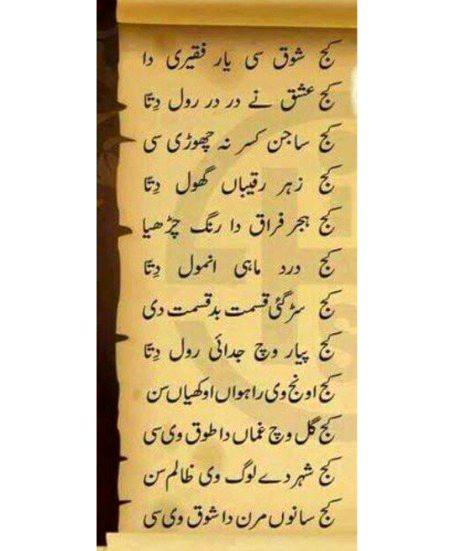 کج شوق سی یار فقیری دا
کج عشق نے در در رول دِتّا
کج ساجن کسر نہ چھوڑی سی
کج زہر رقیباں گھول دِتّا
کج ہجر فراق دا رنگ چڑھیا
کج درد ماہی انمول دِتّا
کج سڑ گئی قسمت بدقسمت دی
کج پیار وچ جدائی رول دِتّا
کج اونج وی راہواں اوکھیاں سن
کج گل وچ غماں دا طوق وی سی
کج شہر دے لوگ وی ظالم سن
کج سانوں مرن دا شوق وی سی